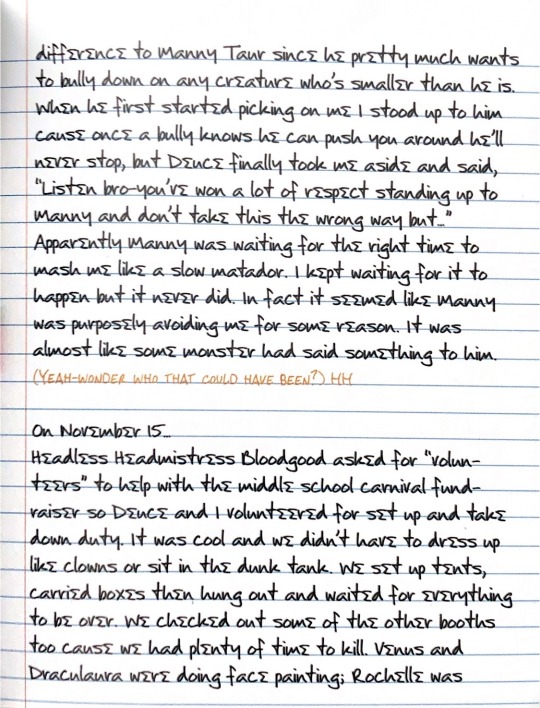 difference to Manny Taur since he pretty much wants
to bully down on any creature who's smaller than he is.
When he first started picking on me I stood up to him
cause once a bully knows he can push you around he'll
never stop, but Deuce finally took me aside and said,
"Listen bro-you've won a lot of respect standing up to
Manny and don't take this the wrong way but…"
Apparently Manny was waiting for the right time to
mash me like a slow matador. I kept waiting for it to
happen but it never did. In fact it seemed like Manny
was purposely avoiding me for some reason. It was
almost like some monster had said something to him.
(YEAH-WONDER WHO THAT COULD HAVE BEEN?) HH
On November 15…
Headless Headmistress Bloodgood asked for "volun-
teers" to help with the middle school carnival fund-
raiser so Deuce and I volunteered for set up and take
down duty. It was cool and we didn't have to dress up
like clowns or sit in the dunk tank. We set up tents,
carried boxes then hung out and waited for everything
to be over. We checked out some of the other booths
too cause we had plenty of time to kill. Venus and
Draculaura were doing face painting; Rochelle was